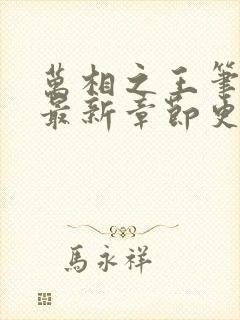 萬相之王筆
最新章節史
馬永祥